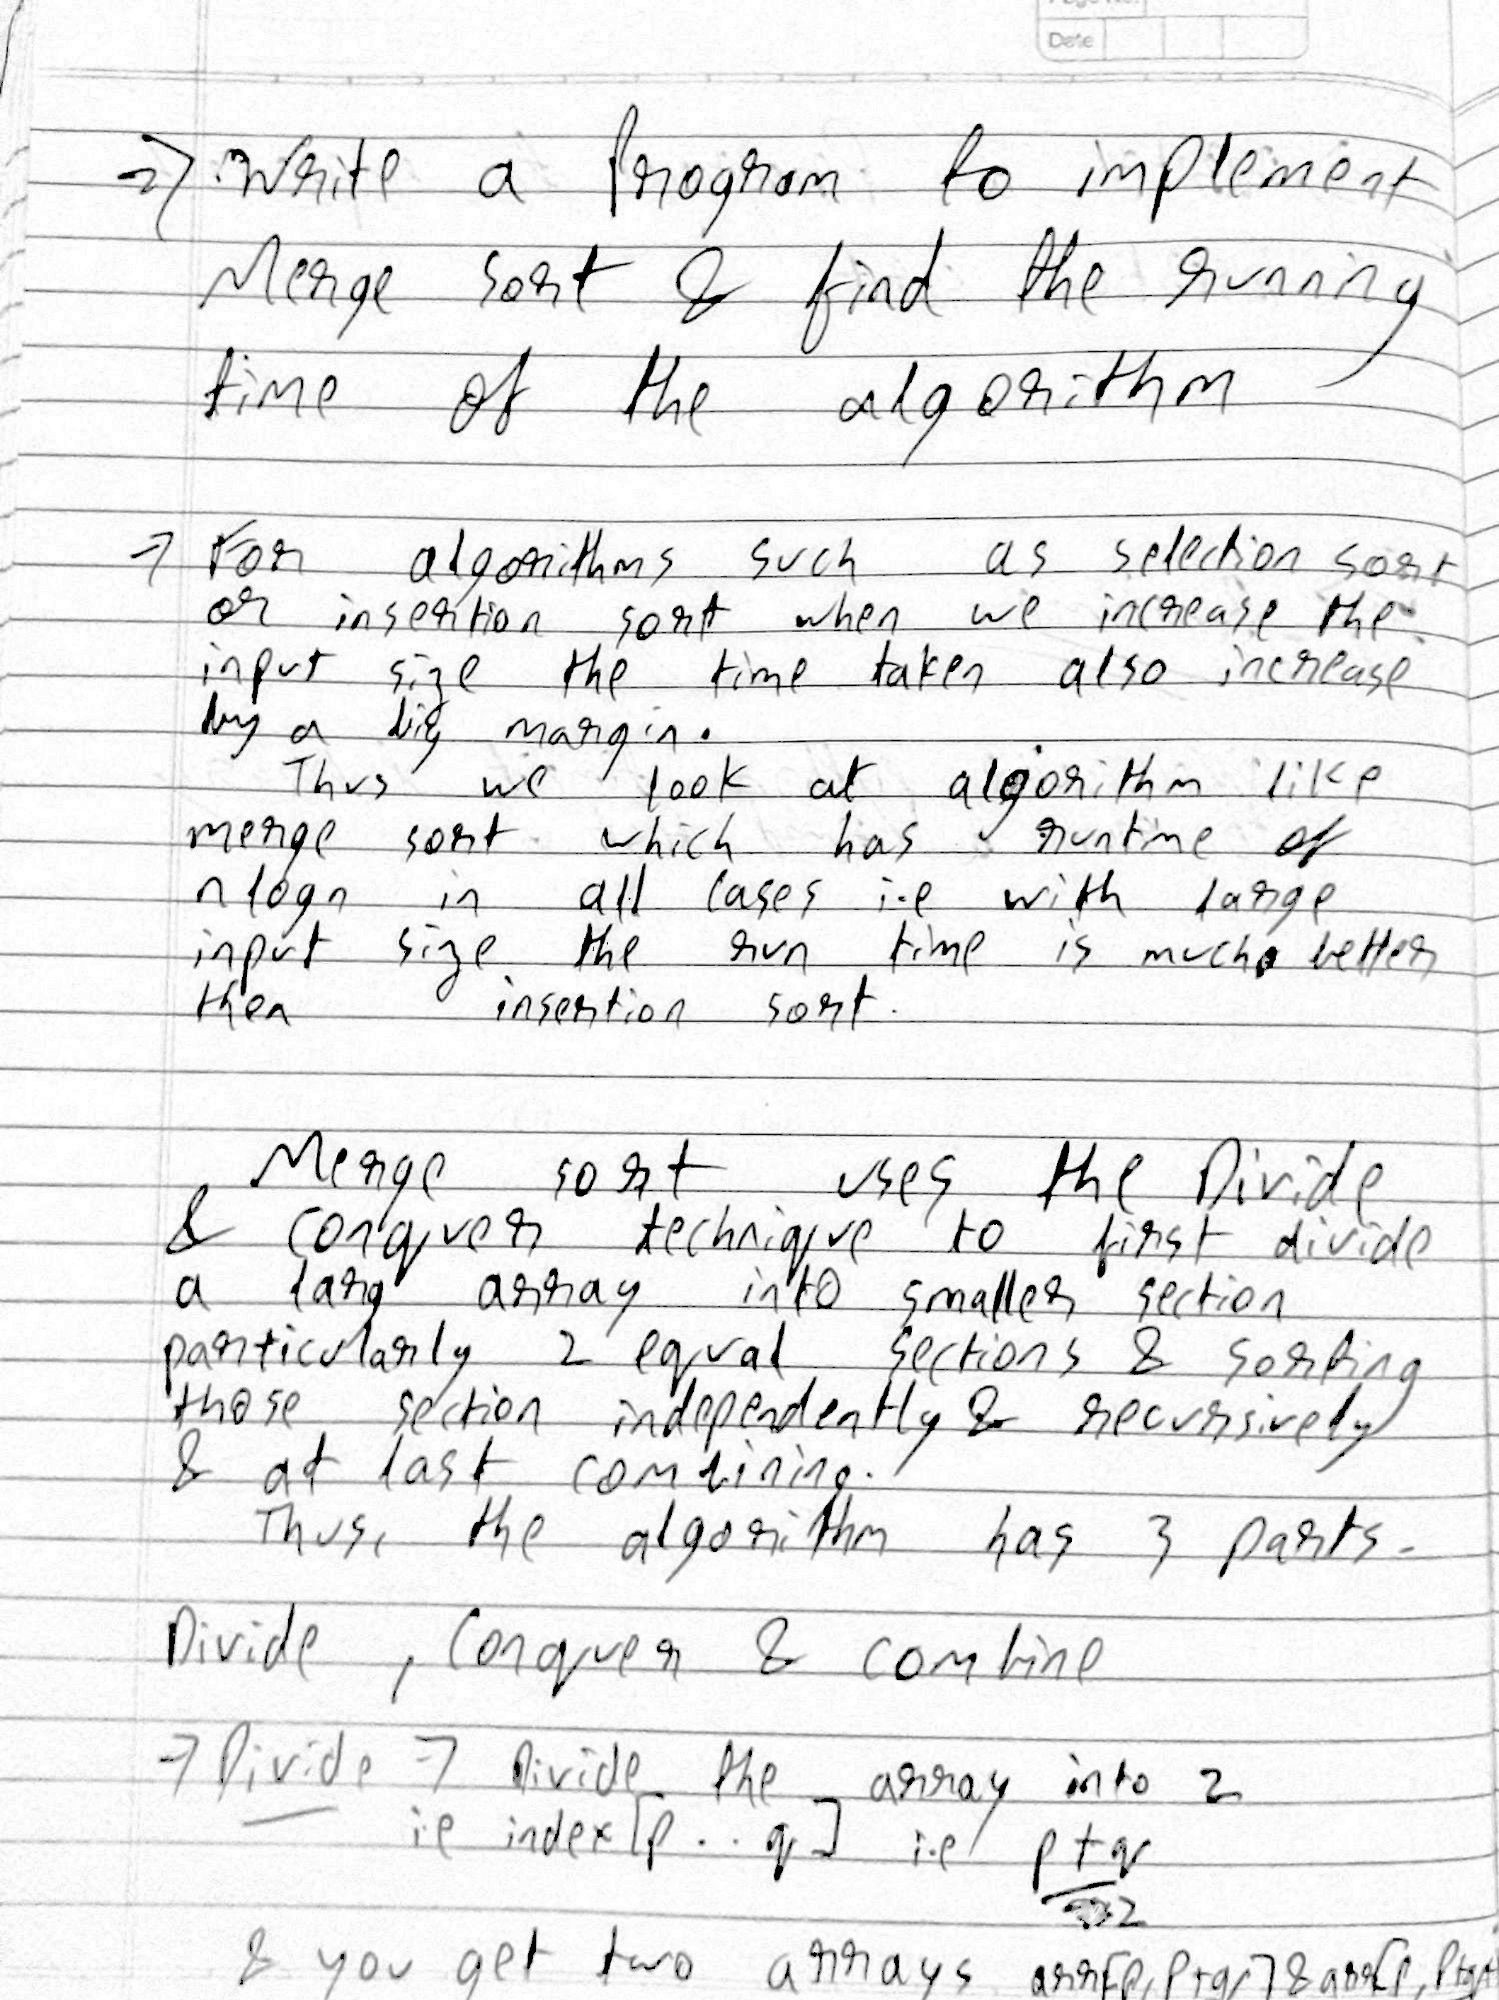 Page No.
Date
=> Write a Program to implement
Merge sort & find the running
time of the algorithm
→ For algorithms such as selection sort
or insertion sort when we increase the
input size the time taken also increase
by a big margin.
Thus we look at algorithm like
merge sort which has runtime of
nlogn in all cases i.e with large
input size the run time is much better
then insertion sort.
Merge sort uses the Divide
& Conquer technique to first divide
a larg array into smaller section
particularly 2 equal sections & sorting
those section independently & recursively
& at last combining.
Thus, the algorithm has 3 parts.
Divide, Conquer & Combine
→ Divide → Divide the array into 2
i.e index [p . . q] i.e p+q
2
& you get two arrays arr[p, p+q] & arr[p, p+q+